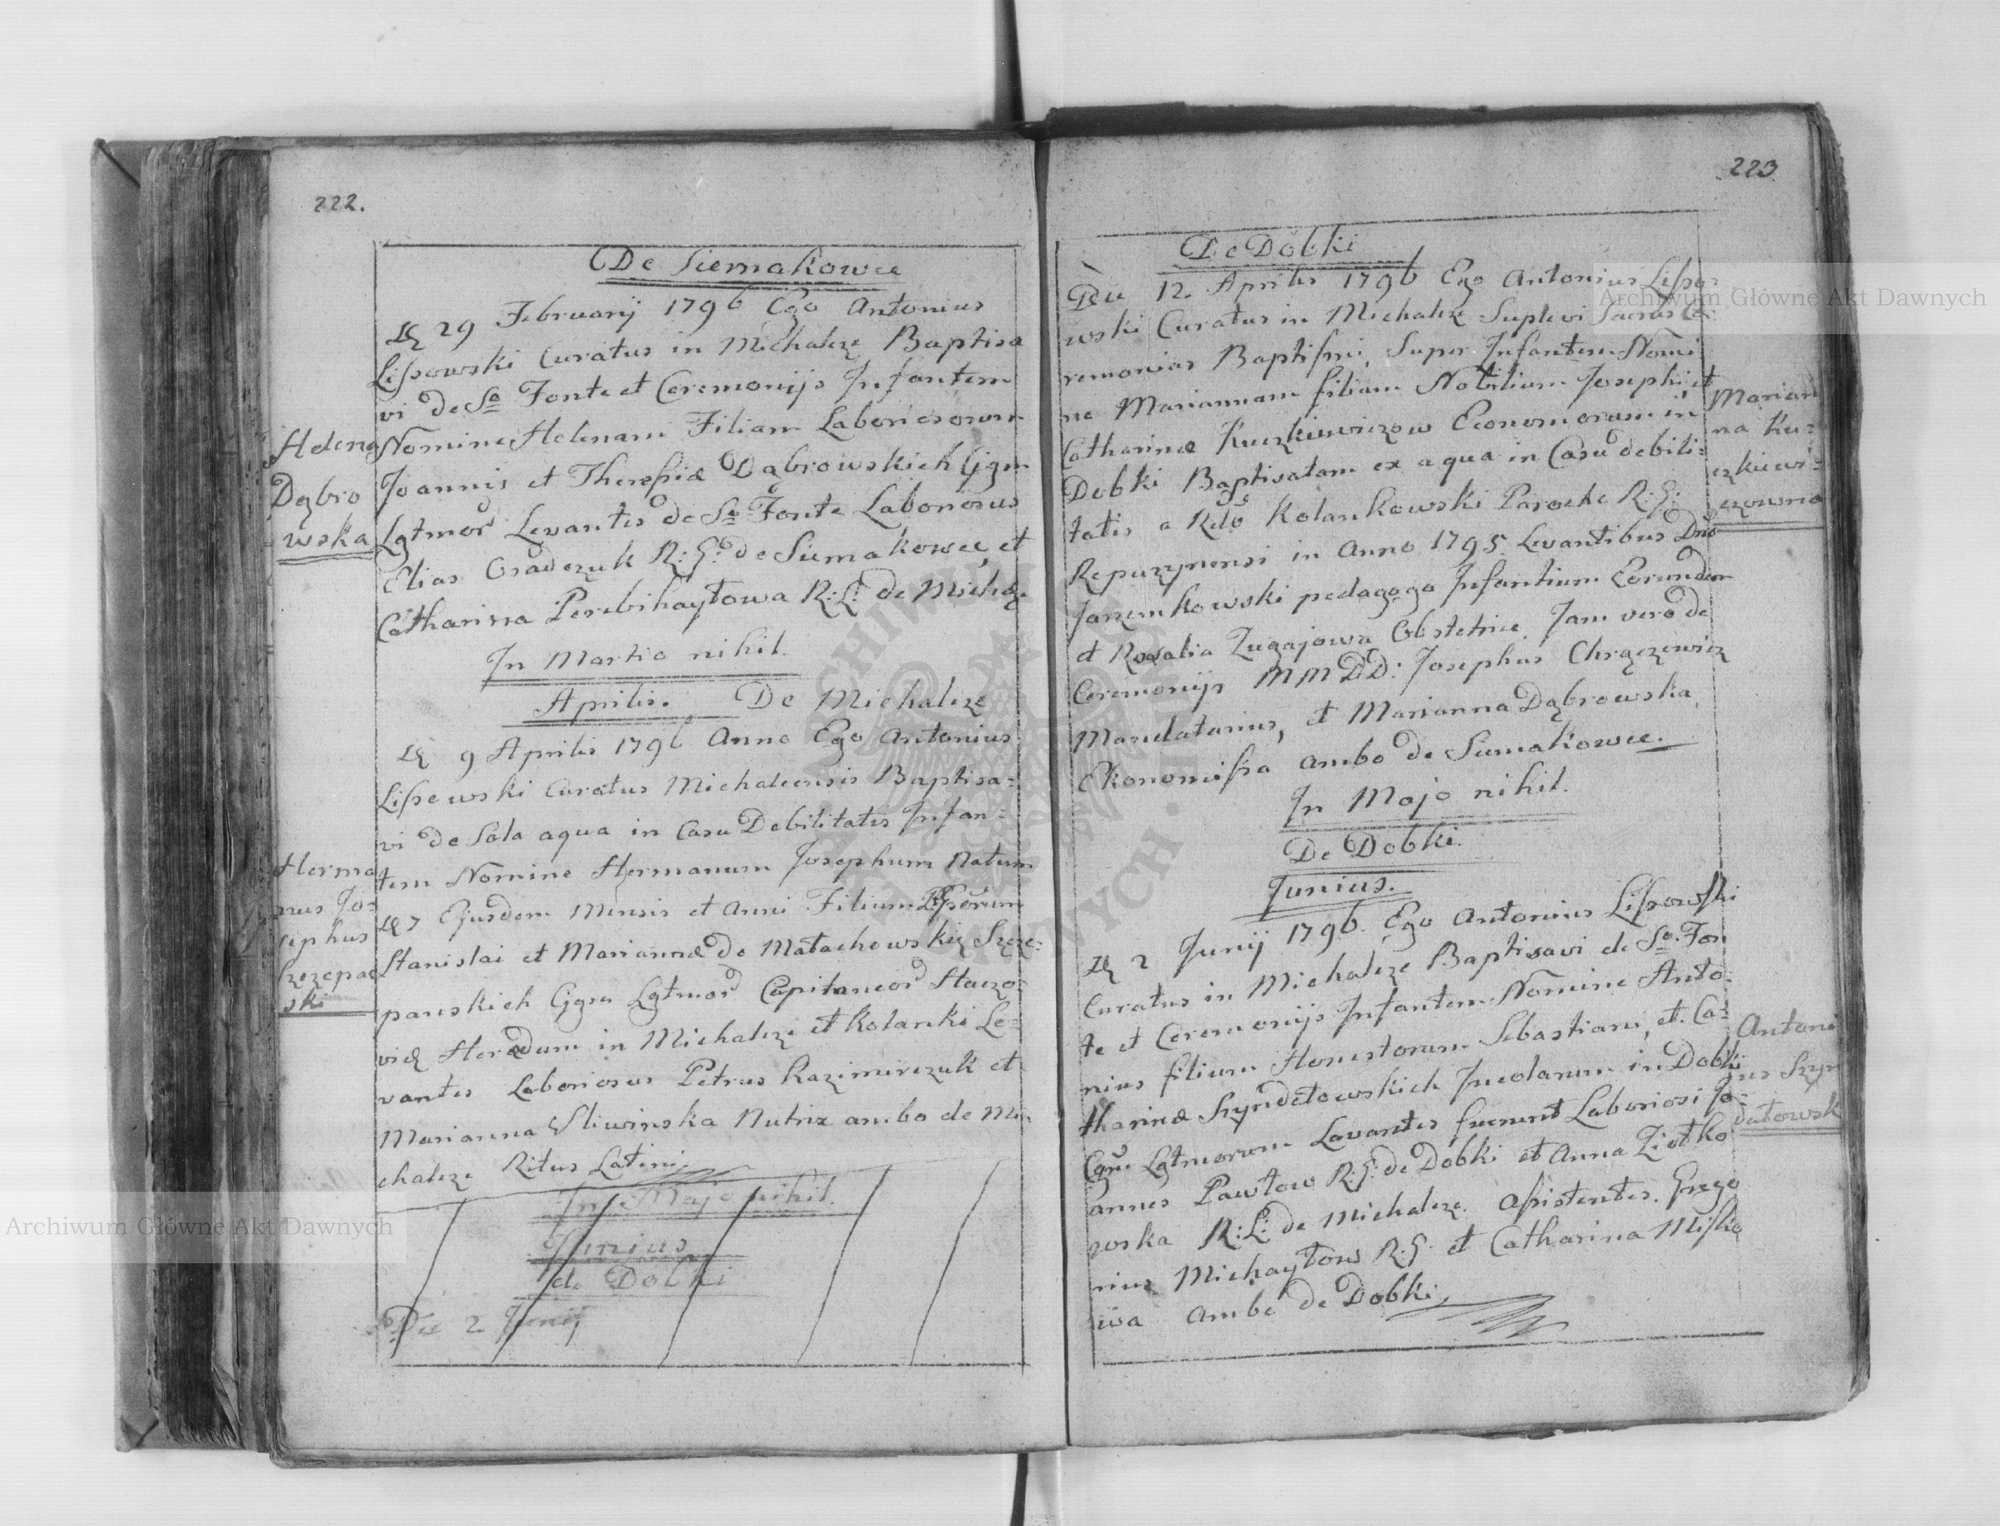 222.
De Siemakowce
29 Februarij 1796 Ego Antonius
Lissowski Curatus in Michalcze Baptisa
vi de So Fonte et Ceremonijs Infantem
Nomine Helenam Filiam Laboriosorum
Joannis et Theresiæ Dąbrowskich Cjgm
Lgtmor Levantes de So Fonte Laboriosus
Elias Osadczuk R: G: de Siemakowce et
Catharina Perebihaytowa R: L: de Michcze
In Martio nihil.
Aprilis. De Michalcze
9 Aprilis 1796 Anno Ego Antonius
Lissowski Curatus Michalcensis Baptisa-
vi de Sola aqua in Casu Debilitatis Infan-
tem Nomine Hermanum Josephum Natum
7 Ejusdem Mensis et Anni Filium
Stanislai et Mariannæ de Małachowskię Szcze-
pańskich Cjgm Lgtmor Capitaneor
viæ Heredum in Michalcze et Kolanki Le-
vantes Laboriosus Petrus Kazimirczuk et
Marianna Sliwinska Nutrix ambo de Mi-
chalcze Ritus Latini
In Majo nihil.
Junius
de Dobki
Die 2 Junij
Helena
Dąbro
wska
Herma
nus Jo-
sephus
Szczepań
ski
223
De Dobki
Die 12. Aprilis 1796 Ego Antonius Lisso-
wski Curatus in Michalcze Suplevi Sacras Ce-
remonias Baptismi Super Infantem Nomi
ne Mariannam filiam Nobilium Josephi et
Catharinæ Kuczkiewiczow Economorum in
Dobki Baptisatam ex aqua in Casu debili-
tatis a Rdo Kolankowski Parocho R: G:
Repuzynensi in Anno 1795. Levantibus Dno
Jaremkowski pedagogo Infantium Eorundem
et Rosalia Zugajowa Obstetrice. Jam vero de
Ceremonijs MM DD: Josephus Chrączewicz
Mandatarius, et Marianna Dąbrowska,
Ekonomissa ambo de Siemakowce.
In Majo nihil.
De Dobki.
Junius.
2 Junij 1796. Ego Antonius Lissowski
Curatus in Michalcze Baptisavi de So. Fon
te et Ceremonijs Infantem Nomine Anto-
nius filium Honestorum Sebastiani, et Ca-
tharinæ Szyndetowskich Incolarum in Dobki
Cjgm Lgtmorum Levantes fuerunt Laboriosi Jo-
annes Pawłow R: G: de Dobki et Anna Ziołko
wska R: L: de Michalcze. Assistentes. Grego
rius Michayłow R: G: et Catharina Misko
wa ambo de Dobki
Marian
na Ku-
czkiewi-
czowna
Antoni
us Szyn
datowski